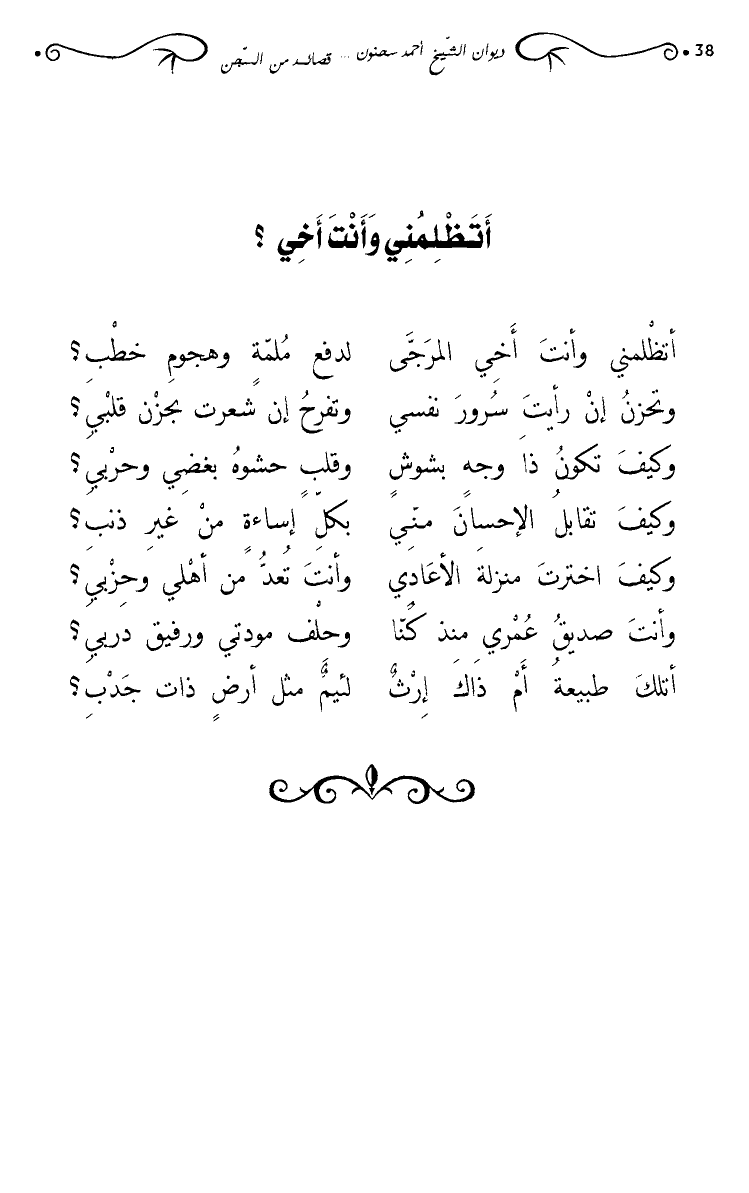 38 ديوان الشّيخ أحمد سحنون ... قصائد من السّجن
أَتَظْلِمُنِي وَأَنْتَ أَخِي ؟
أتظْلمني وأنتَ أَخِي المرَجَّى لدفع مُلمّةٍ وهجومِ خطْبِ؟
وتحزنُ إنْ رأيتَ سُرورَ نفسي وتفرحُ إن شعرت بحزْن قلبْيِ؟
وكيفَ تكونُ ذا وجهٍ بشوشٍ وقلبٍ حشوهُ بغضِي وحرْبيِ؟
وكيفَ تقابلُ الإحسانَ منّـِي بكلِّ إساءةٍ منْ غيرِ ذنبِ؟
وكيفَ اخترتَ منزلة الأعَادِي وأنتَ تُعدُّ من أهْلي وحِزْبيِ؟
وأنتَ صديقُ عُمْرِي منذ كُنّا وحلْف مودتي ورفيق دربيِ؟
أتلكَ طبيعةُ أَمْ ذاكَ إِرْثٌ لئيمٌ مثل أرضٍ ذات جَدْبِ؟